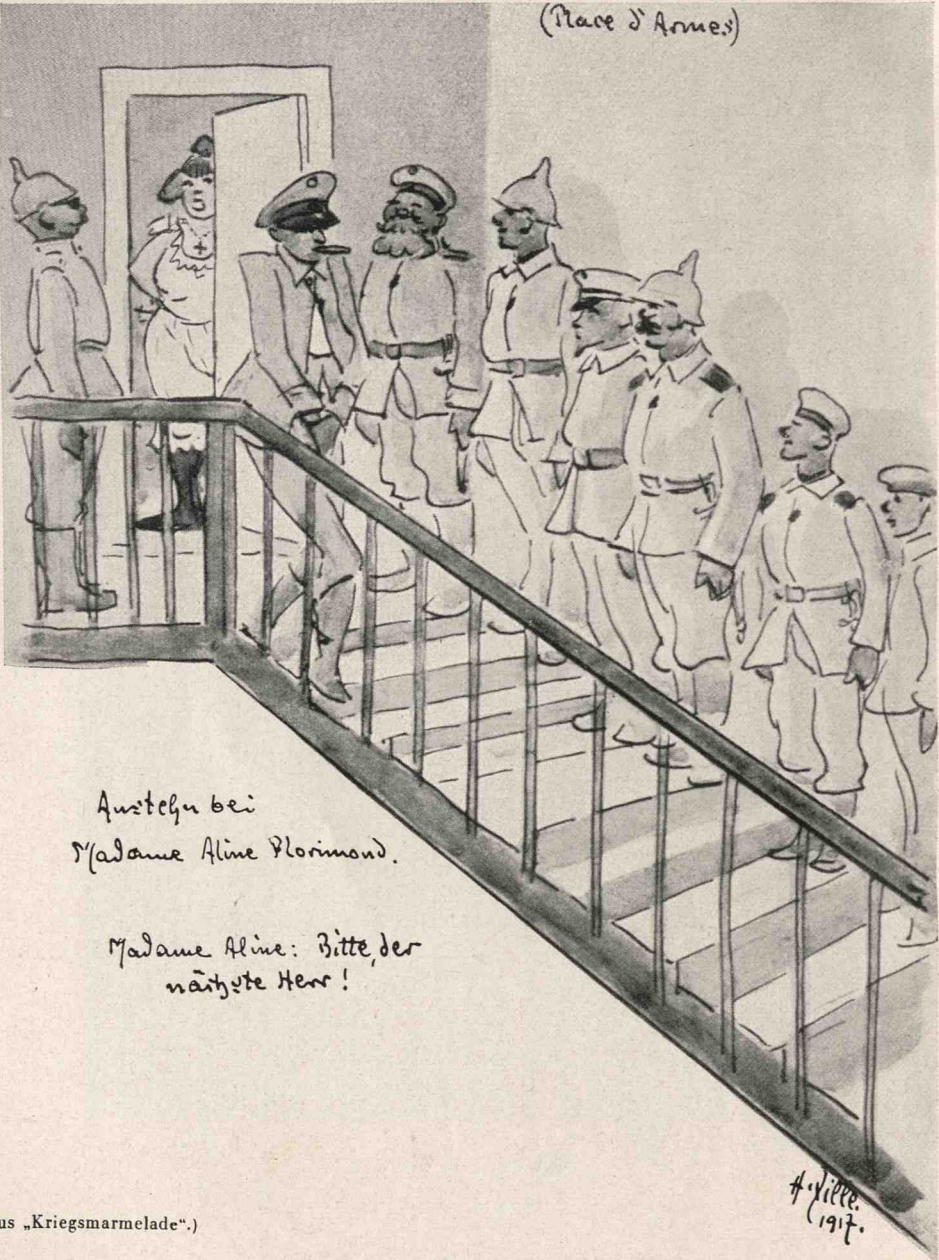 (Place d'Armes)
Anstehn bei
Madame Aline Florimond.
Madame Aline: Bitte, der
nächste Herr!
H. Zille.
1917.
us „Kriegsmarmelade“.)